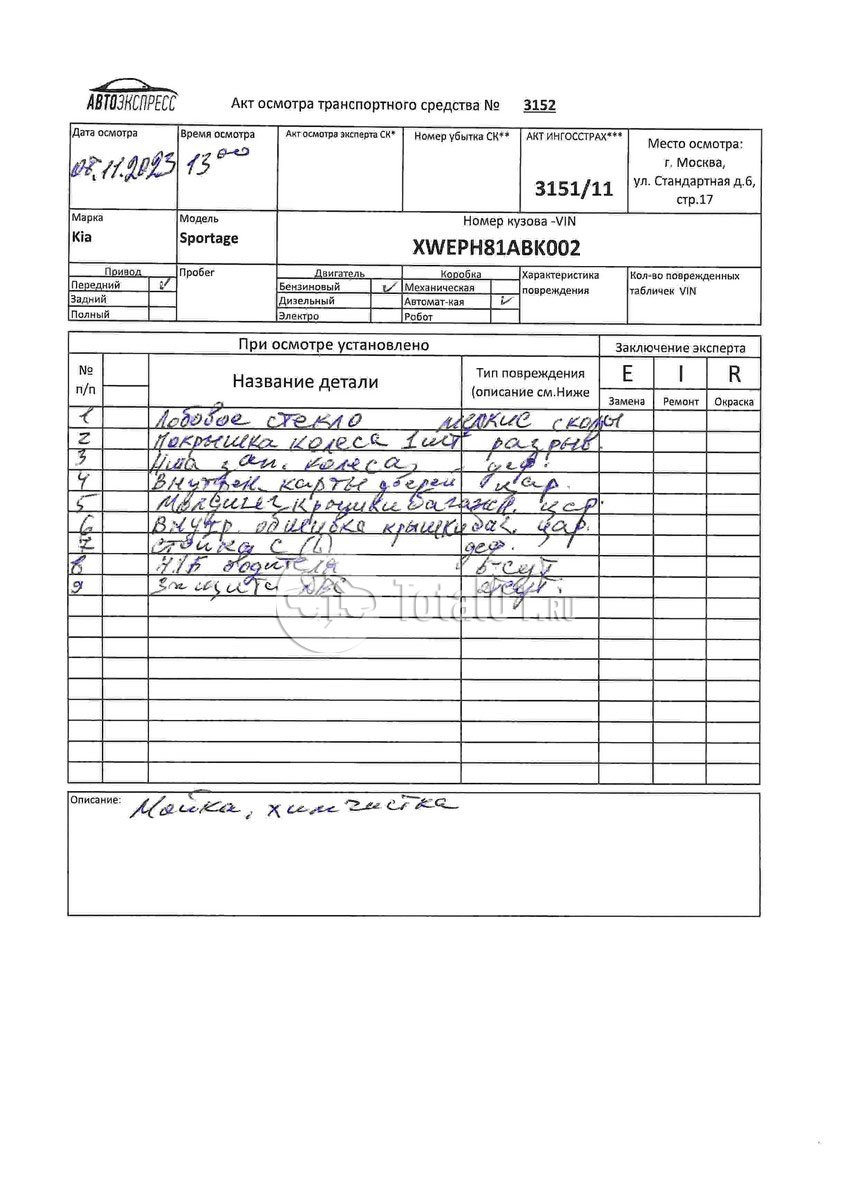 АВТОЭКСПРЕСС
Акт осмотра транспортного средства № 3152
Дата осмотра
08.11.2023
Время осмотра
13 00
Акт осмотра эксперта СК*
Номер убытка СК**
АКТ ИНГОССТРАХ***
3151/11
Место осмотра:
г. Москва,
ул. Стандартная д.6,
стр.17
Марка
Kia
Модель
Sportage
Номер кузова -VIN
XWEPH81ABK002
Привод
Передний ✓
Задний
Полный
Пробег
Двигатель
Бензиновый ✓
Дизельный
Электро
Коробка
Механическая
Автомат-кая ✓
Робот
Характеристика
повреждения
Кол-во поврежденных
табличек VIN
При осмотре установлено
Заключение эксперта
№
п/п
Название детали
Тип повреждения
(описание см.Ниже
E I R
Замена Ремонт Окраска
1 Лобовое стекло мелкие сколы
2 Покрышка колеса 1 шт разрыв.
3 зап. колеса, деф.
4 Внутрен. карты дверей цар.
5 Молдинг крышки багажн. цар.
6 Внутр. обшивка крышки баг. цар.
7 Стойка С (L) деф.
8 водителя
9 Защита ДВС отсут.
Total01.RU
Описание: Мойка, химчистка